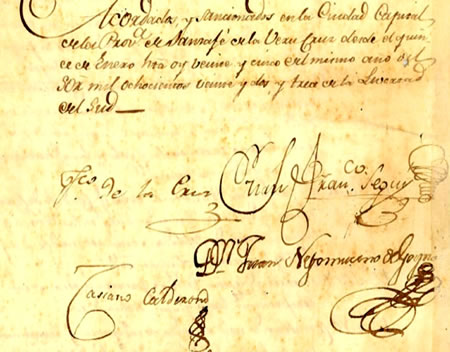 Acordados, y sancionados en la Ciudad Capital
de la Prov.ª de Santafé de la Vera Cruz desde el quin
ce de Enero hta oy veinte y cinco del mismo año del
Sor mil ochocientos veinte y dos y trece de la Livertad
del Sud
Fco. de la Cruz Juan Franco. Segui
Juan Nepomuceno de Goytia
Casiano Calderon